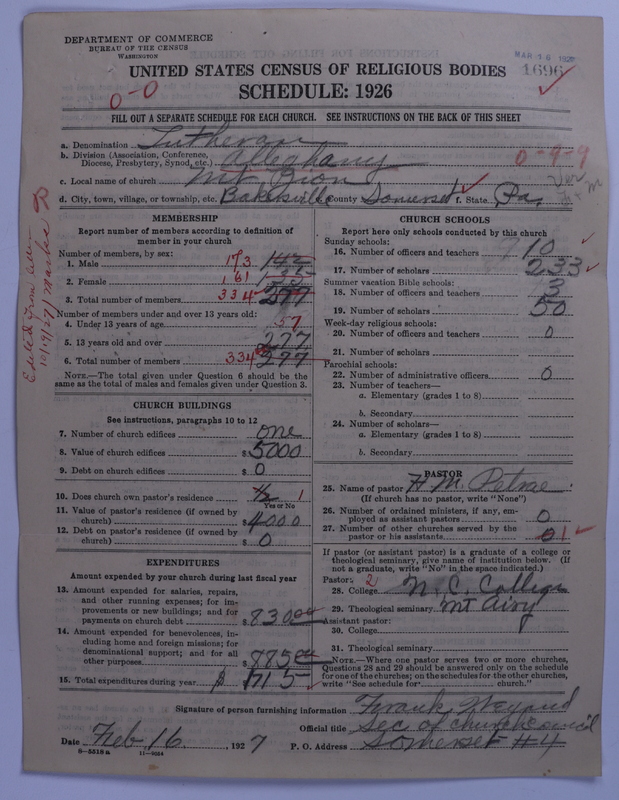 DEPARTMENT OF COMMERCE
BUREAU OF THE CENSUS
WASHINGTON
MAR 16 192
1696
UNITED STATES CENSUS OF RELIGIOUS BODIES
SCHEDULE: 1926
0-0
FILL OUT A SEPARATE SCHEDULE FOR EACH CHURCH. SEE INSTRUCTIONS ON THE BACK OF THIS SHEET
a. Denomination Lutheran
b. Division (Association, Conference, Diocese, Presbytery, Synod, etc.) Alleghany 0-9-9
c. Local name of church Mt Zion
d. City, town, village, or township, etc. Bakersville e. County Somerset f. State Pa.
MEMBERSHIP
Report number of members according to definition of member in your church
Number of members, by sex:
1. Male 173 142
2. Female 161
3. Total number of members 334 277
Number of members under and over 13 years old:
4. Under 13 years of age 57
5. 13 years old and over 277
6. Total number of members 334 277
NOTE.—The total given under Question 6 should be the same as the total of males and females given under Question 3.
CHURCH BUILDINGS
See instructions, paragraphs 10 to 12
7. Number of church edifices one
8. Value of church edifices $ 5000
9. Debt on church edifices $ 0
10. Does church own pastor's residence 1/2 1
Yes or No
11. Value of pastor's residence (if owned by church) $ 4000
12. Debt on pastor's residence (if owned by church) $ 0
EXPENDITURES
Amount expended by your church during last fiscal year
13. Amount expended for salaries, repairs, and other running expenses; for improvements or new buildings; and for payments on church debt $ 830.00
14. Amount expended for benevolences, including home and foreign missions; for denominational support; and for all other purposes $ 885.00
15. Total expenditures during year $ 1715
CHURCH SCHOOLS
Report here only schools conducted by this church
Sunday schools:
16. Number of officers and teachers 10
17. Number of scholars 233
Summer vacation Bible schools:
18. Number of officers and teachers 3
19. Number of scholars 50
Week-day religious schools:
20. Number of officers and teachers 0
21. Number of scholars
Parochial schools:
22. Number of administrative officers 0
23. Number of teachers—
a. Elementary (grades 1 to 8)
b. Secondary
24. Number of scholars—
a. Elementary (grades 1 to 8)
b. Secondary
PASTOR
25. Name of pastor H M Petrae
(If church has no pastor, write "None")
26. Number of ordained ministers, if any, employed as assistant pastors 0
27. Number of other churches served by the pastor or his assistants 0 1
If pastor (or assistant pastor) is a graduate of a college or theological seminary, give name of institution below. (If not a graduate, write "No" in the space indicated.)
Pastor: 2
28. College N. C. College
29. Theological seminary Mt Airy
Assistant pastor:
30. College
31. Theological seminary
NOTE.—Where one pastor serves two or more churches, Questions 28 and 29 should be answered only on the schedule for one of the churches; on the schedules for the other churches, write "See schedule for church."
Signature of person furnishing information Frank Weyand
Official title Sec of church council
Date Feb 16, 1927 P. O. Address Somerset #4
8-5518a 11-9254